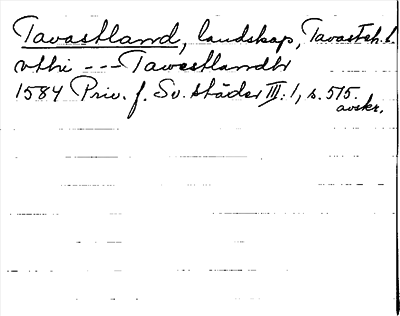 Tavastland, landskap, Tavasteh. l.
vthi --- Tawestlandh
1584 Priv. f. Sv. städer III: 1, s. 515.
avskr.